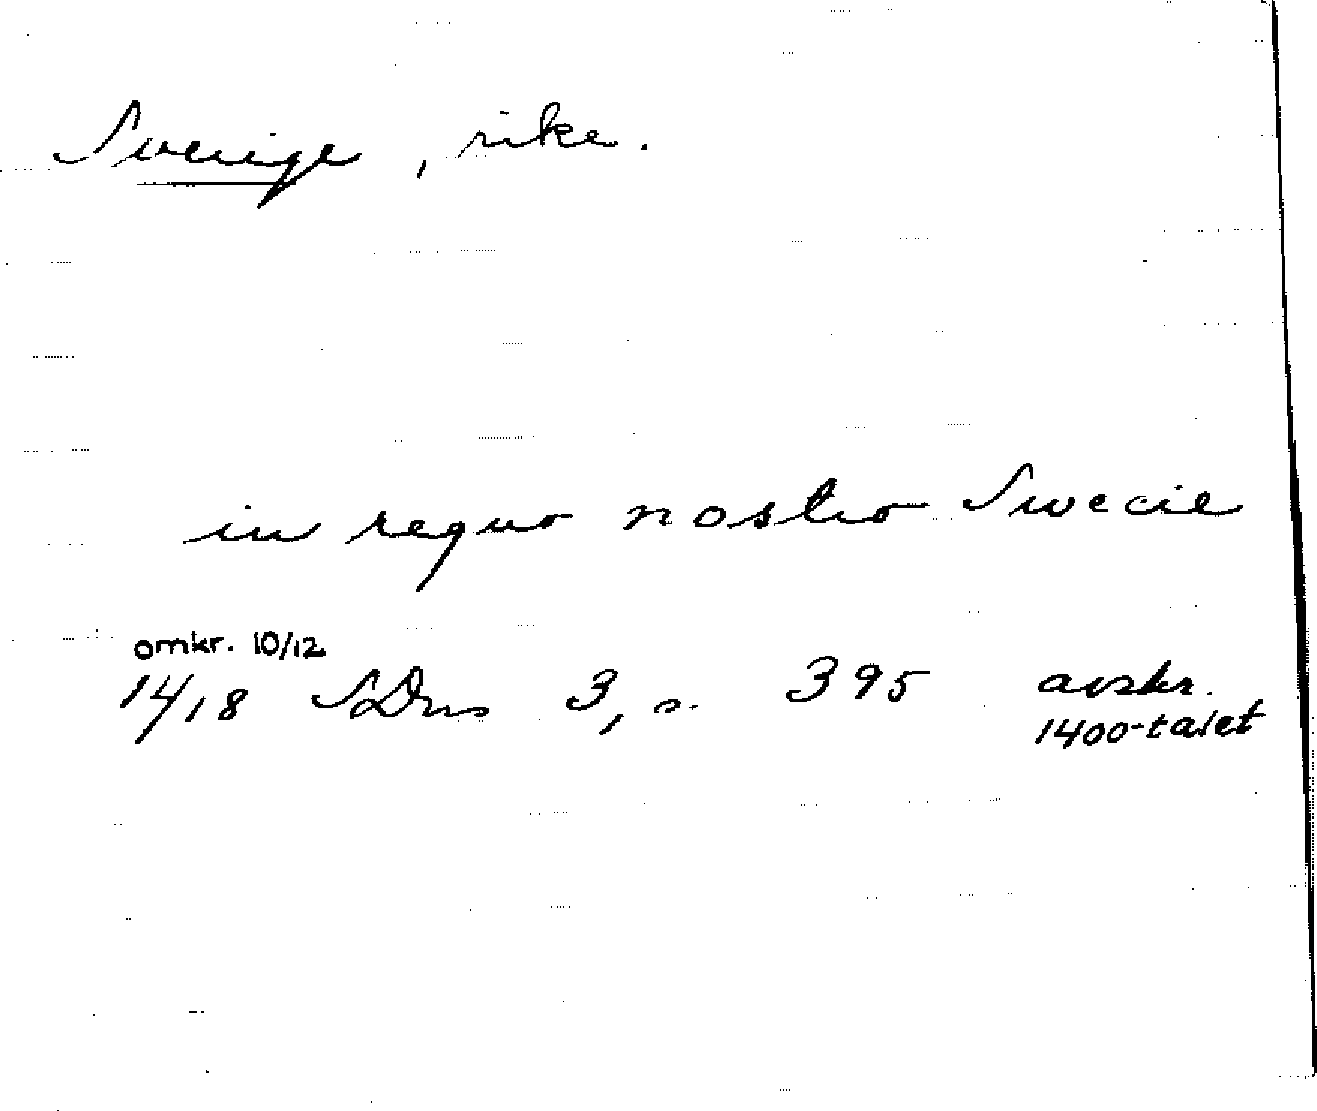 Sverige, rike.
in regno nostro Swecie
omkr. 10/12
1418 SDns 3, s. 395 avskr.
1400-talet